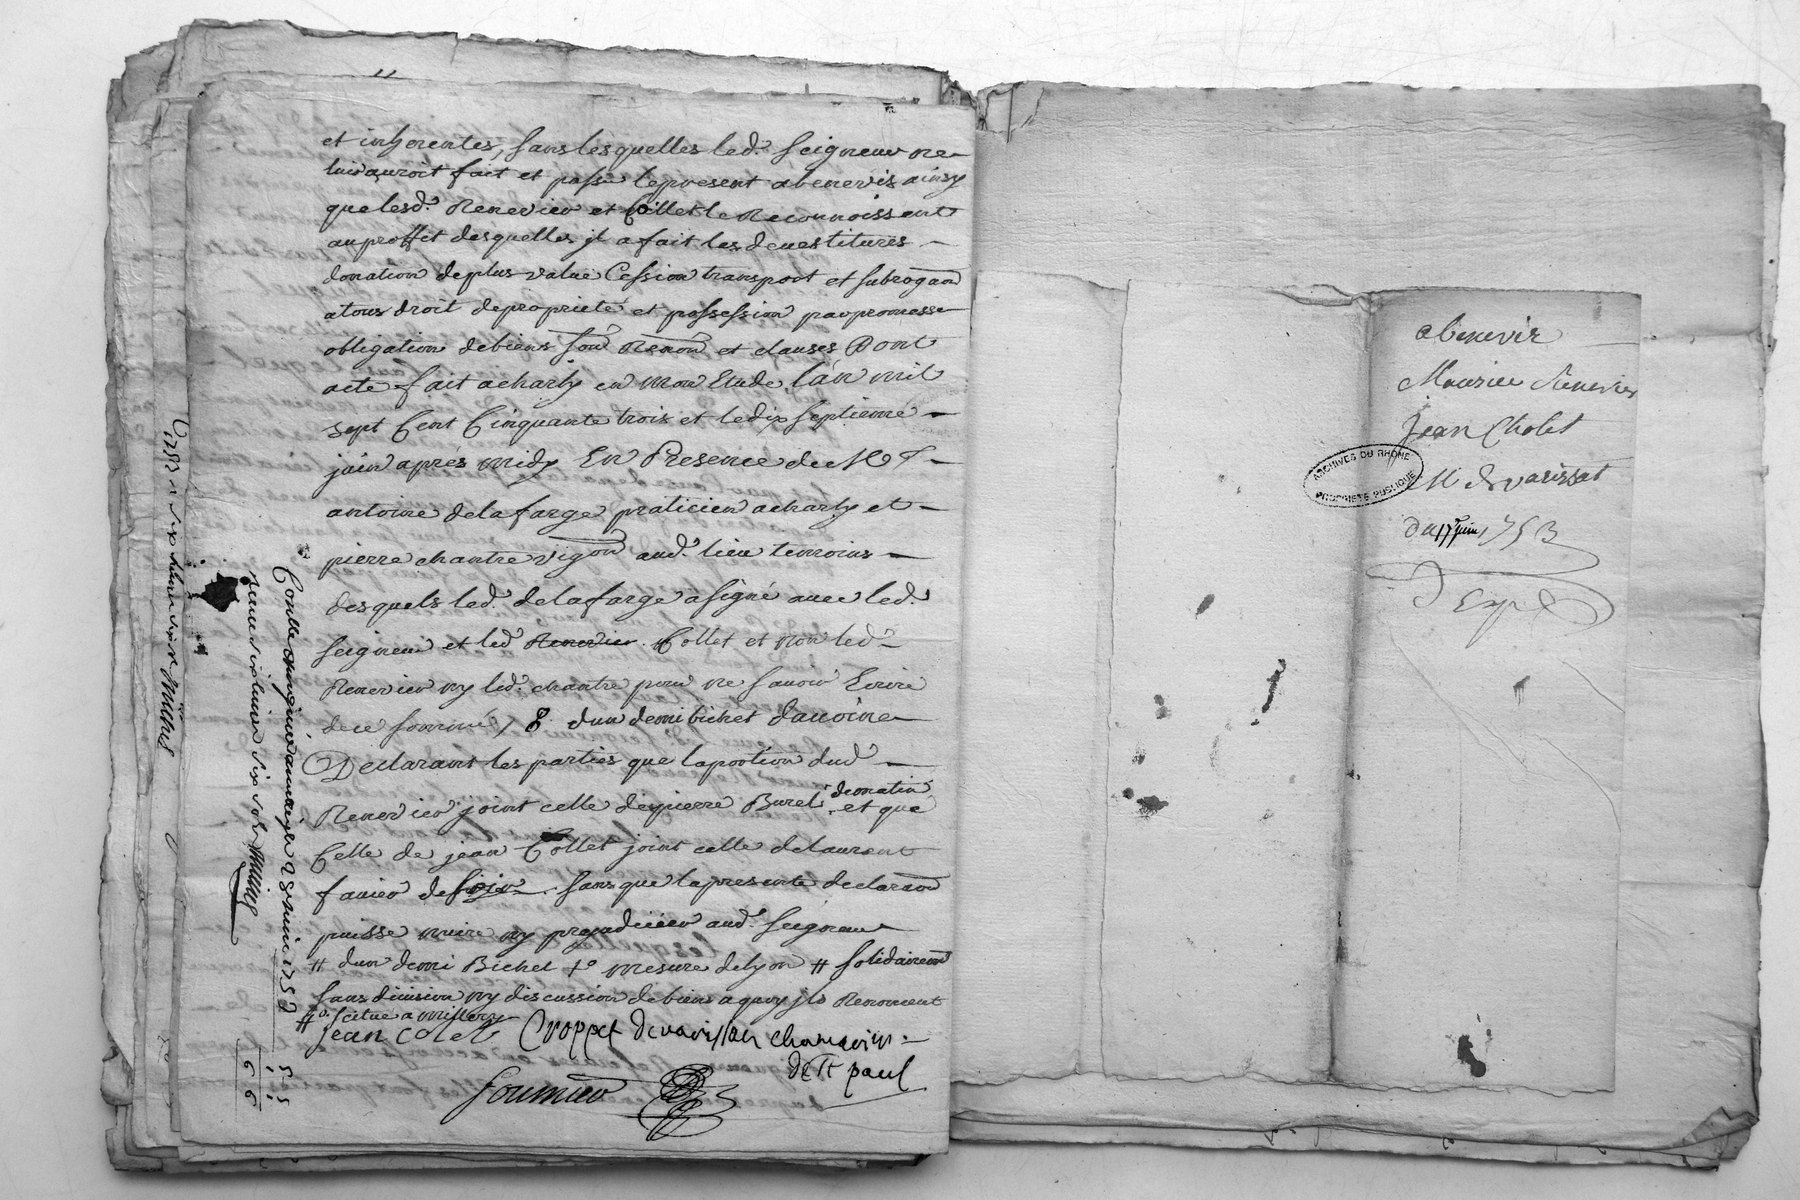 et inherentes, sans lesquelles led. seigneur ne
luy auroit fait et passé le present abenevis ainsy
que lesd. Renevier et Collet le Reconnoissent
au proffit desquelles jl a fait les devestitures
donation de plus value Cession transport et subrogaon
a tous droit de proprieté et possession par promesse
obligation de biens son Renon et clauses Dont
acte fait a charly en mon Etude l'an mil
sept Cent Cinquante trois et le dix septieme
juin après midy En Presence de
antoine delafarge praticien a charly et
pierre chantre vigon aud. lieu temoins
desquels led. delafarge a signé avec led.
seigneur et led. Renevier Collet et non led.
Renevier ny led. chantre pour ne savoir Ecrire
de ce sommé / 8. d'un demi bichet d'avoine
Declarant les parties que la portion dud.
Renevier joint celle de pierre Burel donatin et que
Celle de jean Collet joint celle de laurent
favier de sans que la presente declaraon
puisse nuire ny prejudicier aud. seigneur
# d'un demi Bichet mesure de lyon # solidairem
sans division ny discussion de biens a quoy jls Renoncent
# scitue a millery
jean colet Croppet devarissan chanoin
de st paul
fournier
Conllé a 28 juin 1753
Reçu six livres six sols
5 5
1 1
6 6
abenevis
Maurice Renevier
Jean Cholet
M devarissat
du 17 juin 1753
Expé
ARCHIVES DU RHÔNE
PROPRIÉTÉ PUBLIQUE